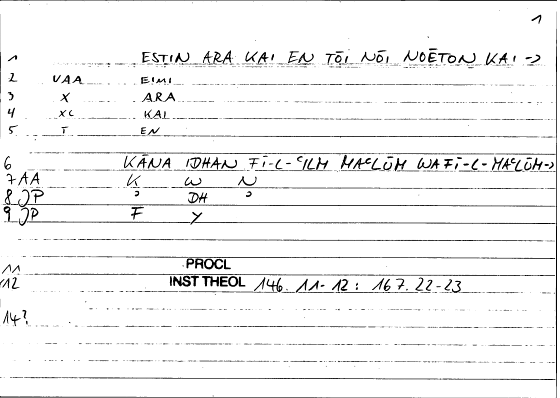 1
1 ESTIN ARA KAI EN TŌI NŌI NOĒTON KAI ->
2 VAA EIMI
3 X ARA
4 XC KAI
5 T EN
6 KĀNA IDHAN FĪ-L-ʿILM MAʿLŪM WAFĪ-L-MAʿLŪM->
7 AA K W N
8 JP ʾ DH ʾ
9 JP F Y
11 PROCL
12 INST THEOL 146. 11-12 : 167. 22-23
14?